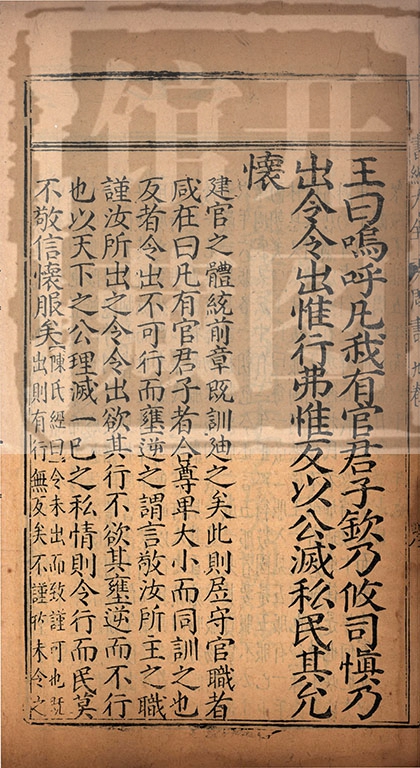 王曰嗚呼凡我有官君子欽乃攸司慎乃
出令令出惟行弗惟反以公滅私民其允
懷
建官之體統前章既訓迪之矣此則居守官職者
咸在曰凡有官君子者合尊卑大小而同訓之也
反者令出不可行而壅逆之謂言敬汝所主之職
謹汝所出之令令出欲其行不欲其壅逆而不行
也以天下之公理滅一己之私情則令行而民莫
不敬信懷服矣
陳氏經曰令未出而致謹可也既
出則有行無反矣不謹於未令之